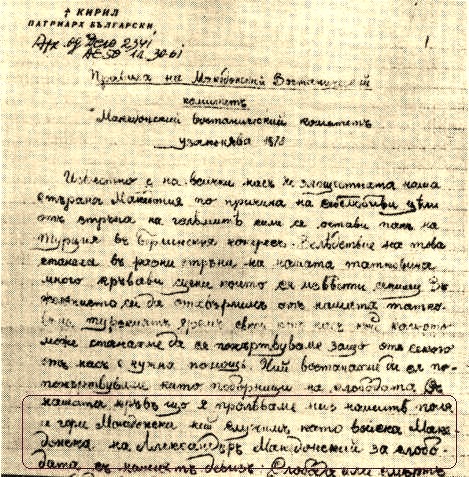 † КИРИЛ
ПАТРИАРХ БЪЛГАРСКИ
1.
Правила на Македонскй Востанически
комитетъ
Македонски востанически комитетъ
узаконява 1878
Известно е на всички насъ че злощастната наша
страна Македония по причина на себелюбиви цѣли
отъ стръна на големитѣ сили се остави пакъ на
Турция въ Берлинския конгресъ. Вследствие на това
станаха въ разни стрѣни на нашата татковина
много кървави сцени които
да отхвърлимъ отъ нашата татко-
вина турскиятъ яремъ
може станахме да се пожъртвуваме защо отъ секого
отъ насъ е нужна помощь. Ний востанахме да се по-
пожъртвуваме като поборници на слободата. Съ
нашата кръвь що я пролѣваме низ нашитѣ поля
и гори Македонски ний служимъ като войска Маке-
донска на Александъръ Македонский за слобо-
дата съ нашиятъ девизъ: Слобода или смърть